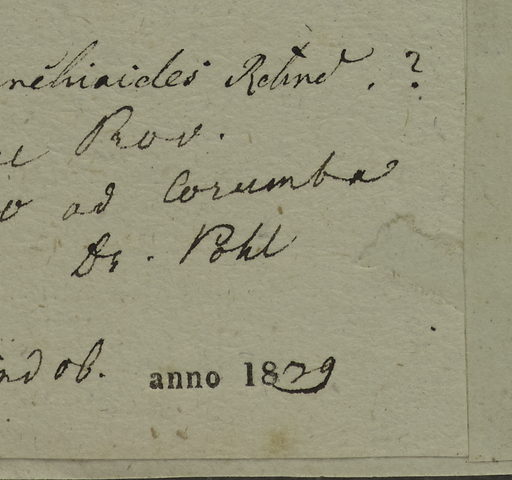 nchioides Rchnd. ?
Rov.
o ad Corumba
Dr. Pohl
ndob. anno 1829